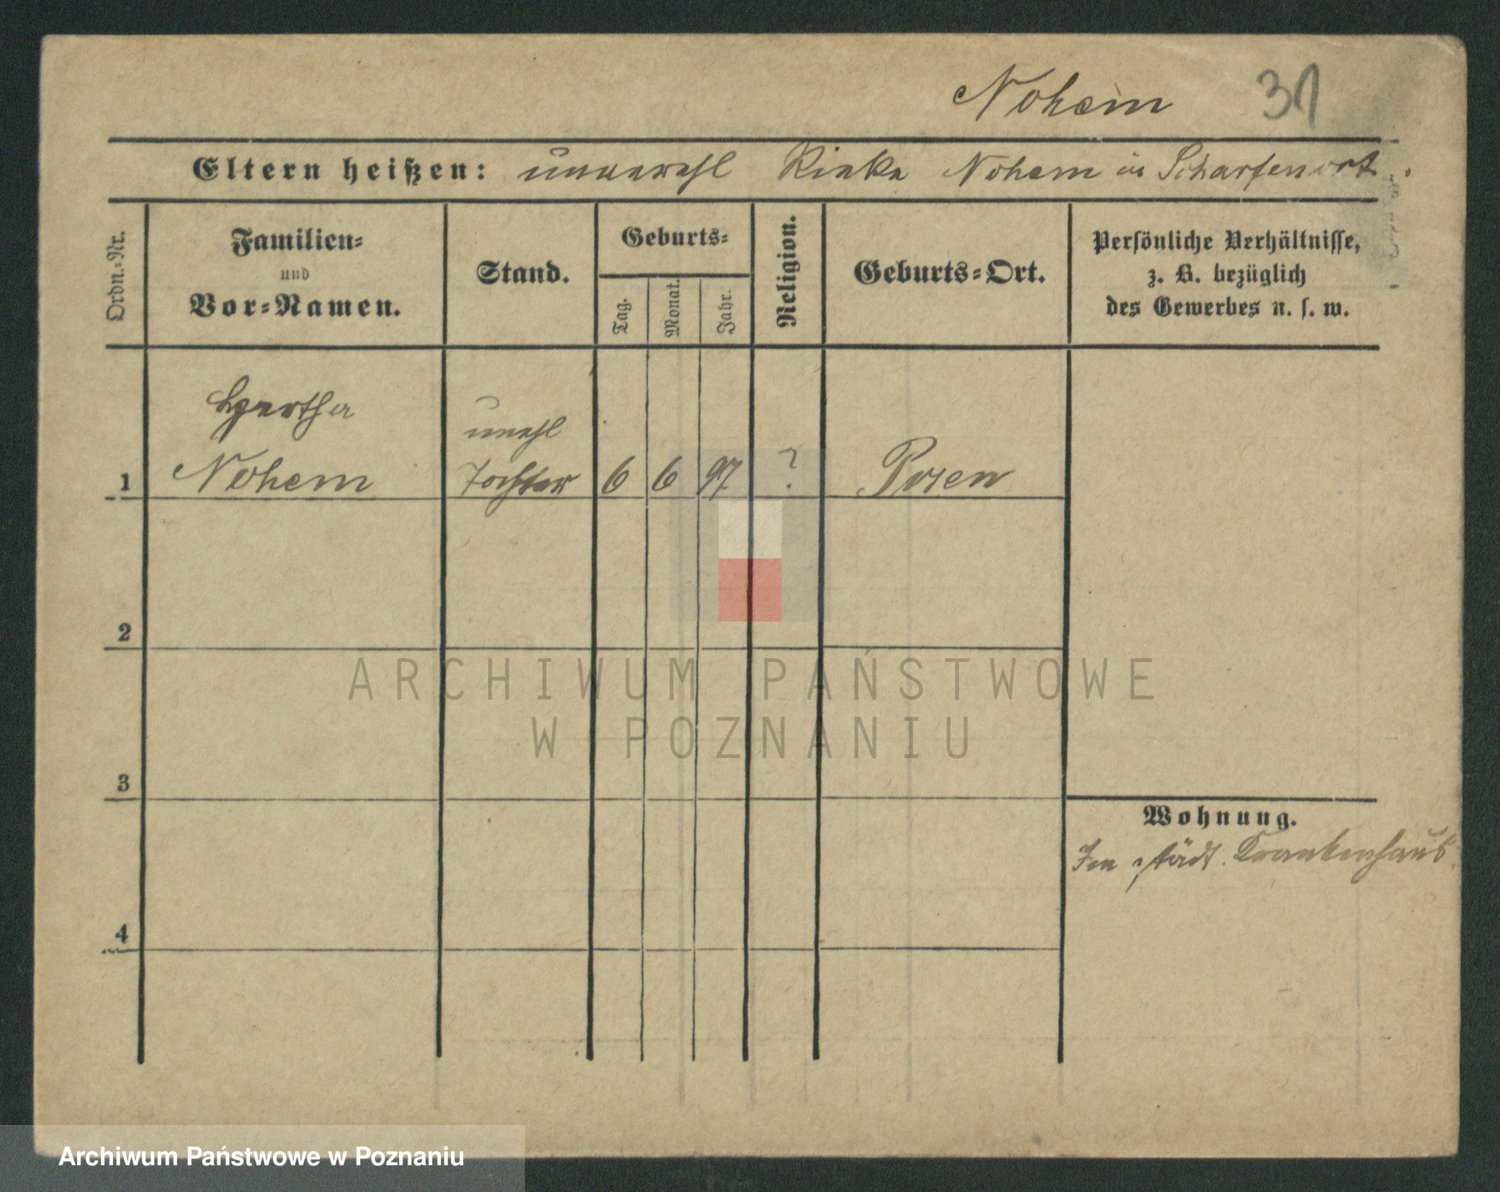 Nohem 31
Eltern heißen: unverehl Rieke Nohem in Scharfenort.
Ordn.-Nr.
Familien-
und
Vor-Namen.
Stand.
Geburts-
Tag.
Monat.
Jahr.
Religion.
Geburts-Ort.
Persönliche Verhältnisse,
z. B. bezüglich
des Gewerbes u. s. w.
Hertha
unehl
1 Nohem Tochter 6 6 97 ? Posen
2
ARCHIWUM PAŃSTWOWE
W POZNANIU
3
Wohnung.
Im städt. Krankenhaus
4
Archiwum Państwowe w Poznaniu